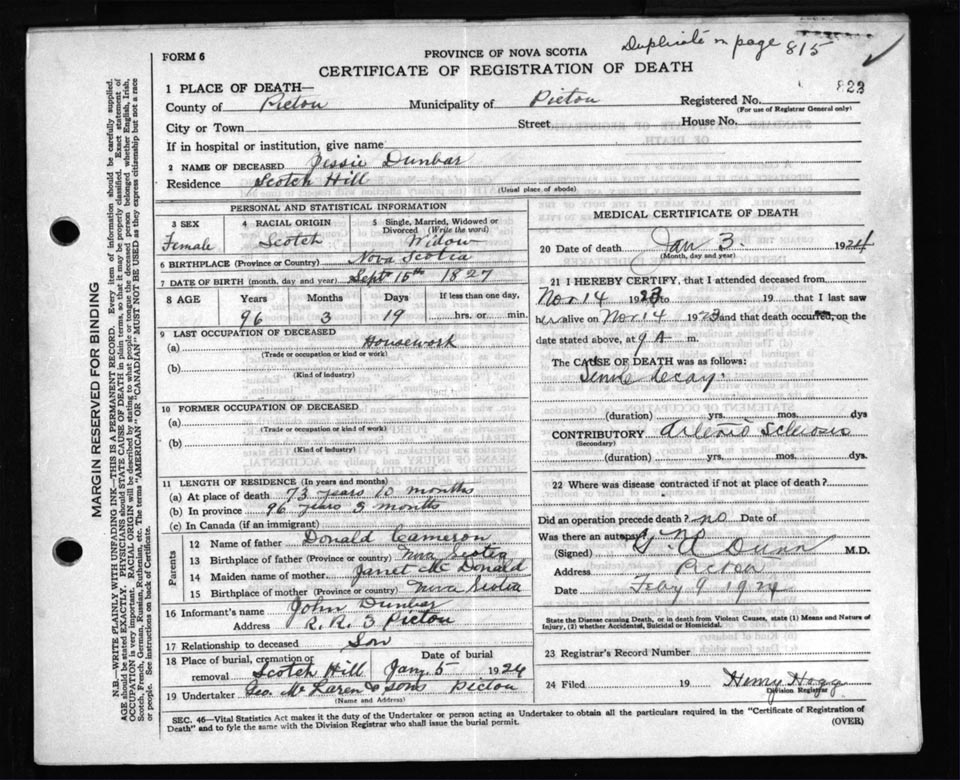 Duplicate on page 815
FORM 6
PROVINCE OF NOVA SCOTIA
CERTIFICATE OF REGISTRATION OF DEATH
823
1 PLACE OF DEATH—
County of Pictou Municipality of Pictou Registered No.
(For use of Registrar General only)
City or Town Street House No.
If in hospital or institution, give name
2 NAME OF DECEASED Jessie Dunbar
Residence Scotch Hill
(Usual place of abode)
PERSONAL AND STATISTICAL INFORMATION
3 SEX 4 RACIAL ORIGIN 5 Single, Married, Widowed or Divorced (Write the word)
Female Scotch Widow
6 BIRTHPLACE (Province or Country) Nova Scotia
7 DATE OF BIRTH (month, day and year) Sept 15th 1827
8 AGE Years Months Days If less than one day,
96 3 19 hrs. or min.
9 LAST OCCUPATION OF DECEASED
(a) Housework
(Trade or occupation or kind or work)
(b)
(Kind of industry)
10 FORMER OCCUPATION OF DECEASED
(a)
(Trade or occupation or kind of work)
(b)
(Kind of industry)
11 LENGTH OF RESIDENCE (In years and months)
(a) At place of death 73 years 10 months
(b) In province 96 years 3 months
(c) In Canada (if an immigrant)
Parents
12 Name of father Donald Cameron
13 Birthplace of father (Province or country) Nova Scotia
14 Maiden name of mother Janet McDonald
15 Birthplace of mother (Province or country) Nova Scotia
16 Informant's name John Dunbar
Address R. R. 3 Pictou
17 Relationship to deceased Son
18 Place of burial, cremation or removal Scotch Hill Date of burial Jan. 5 1924
19 Undertaker Geo. McLaren & Sons Pictou
(Name and Address)
MEDICAL CERTIFICATE OF DEATH
20 Date of death Jan 3. 1924
(Month, day and year)
21 I HEREBY CERTIFY, that I attended deceased from
Nov 14 1923 to 19 that I last saw
her alive on Nov 14 1923 and that death occurred, on the
date stated above, at 9 A m.
The CAUSE OF DEATH was as follows:
Senile decay.
(duration) yrs. mos. dys
CONTRIBUTORY Arterio Sclerosis
(Secondary)
(duration) yrs. mos. dys.
22 Where was disease contracted if not at place of death?
Did an operation precede death? no Date of
Was there an autopsy?
(Signed) Dunn M.D.
Address Pictou
Date Feby 9 1924
State the Disease causing Death, or in death from Violent Causes, state (1) Means and Nature of Injury, (2) whether Accidental, Suicidal or Homicidal.
23 Registrar's Record Number
24 Filed 19 Henry Hogg
Division Registrar
SEC. 46—Vital Statistics Act makes it the duty of the Undertaker or person acting as Undertaker to obtain all the particulars required in the "Certificate of Registration of
Death" and to fyle the same with the Division Registrar who shall issue the burial permit. (OVER)
MARGIN RESERVED FOR BINDING
N.B.—WRITE PLAINLY WITH UNFADING INK—THIS IS A PERMANENT RECORD. Every item of information should be carefully supplied.
AGE should be stated EXACTLY. PHYSICIANS should STATE CAUSE OF DEATH in plain terms, so that it may be properly classified. Exact statement of
OCCUPATION is very important. RACIAL ORIGIN will be described by stating to what people or tongue the deceased person belonged whether English, Irish,
Scotch, French, German, Russian, Ruthenian, etc. The terms "AMERICAN" OR "CANADIAN" MUST NOT BE USED as they express citizenship but not a race
or people. See instructions on back of Certificate.